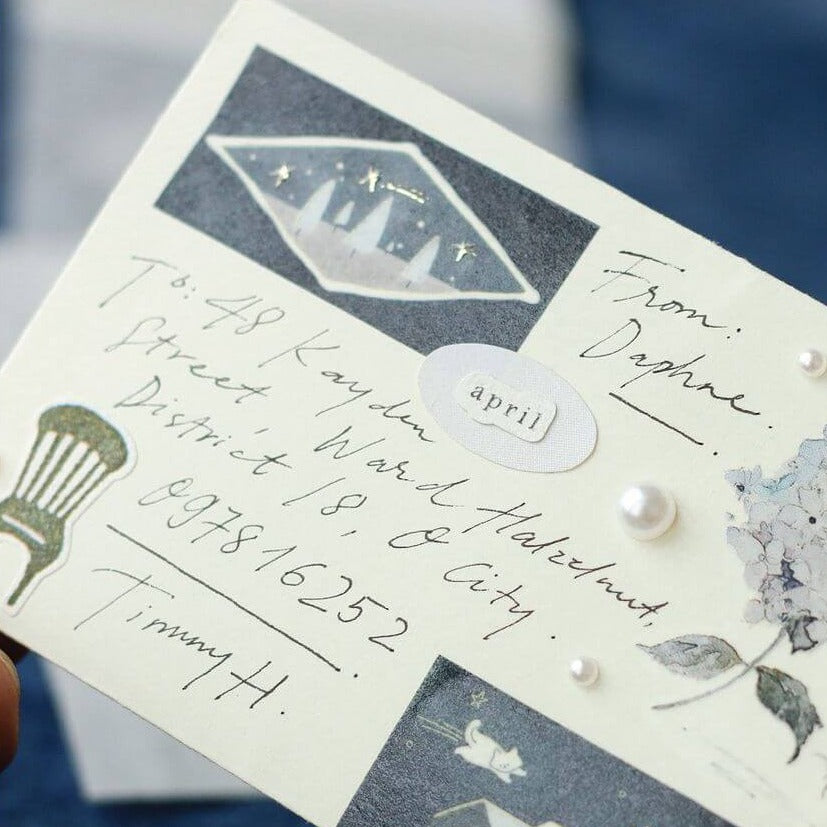 To: 48 Kayden
Street, Ward Halzelnut,
District 18, O City.
0978 16252
Timmy H.
april
From:
Daphne.